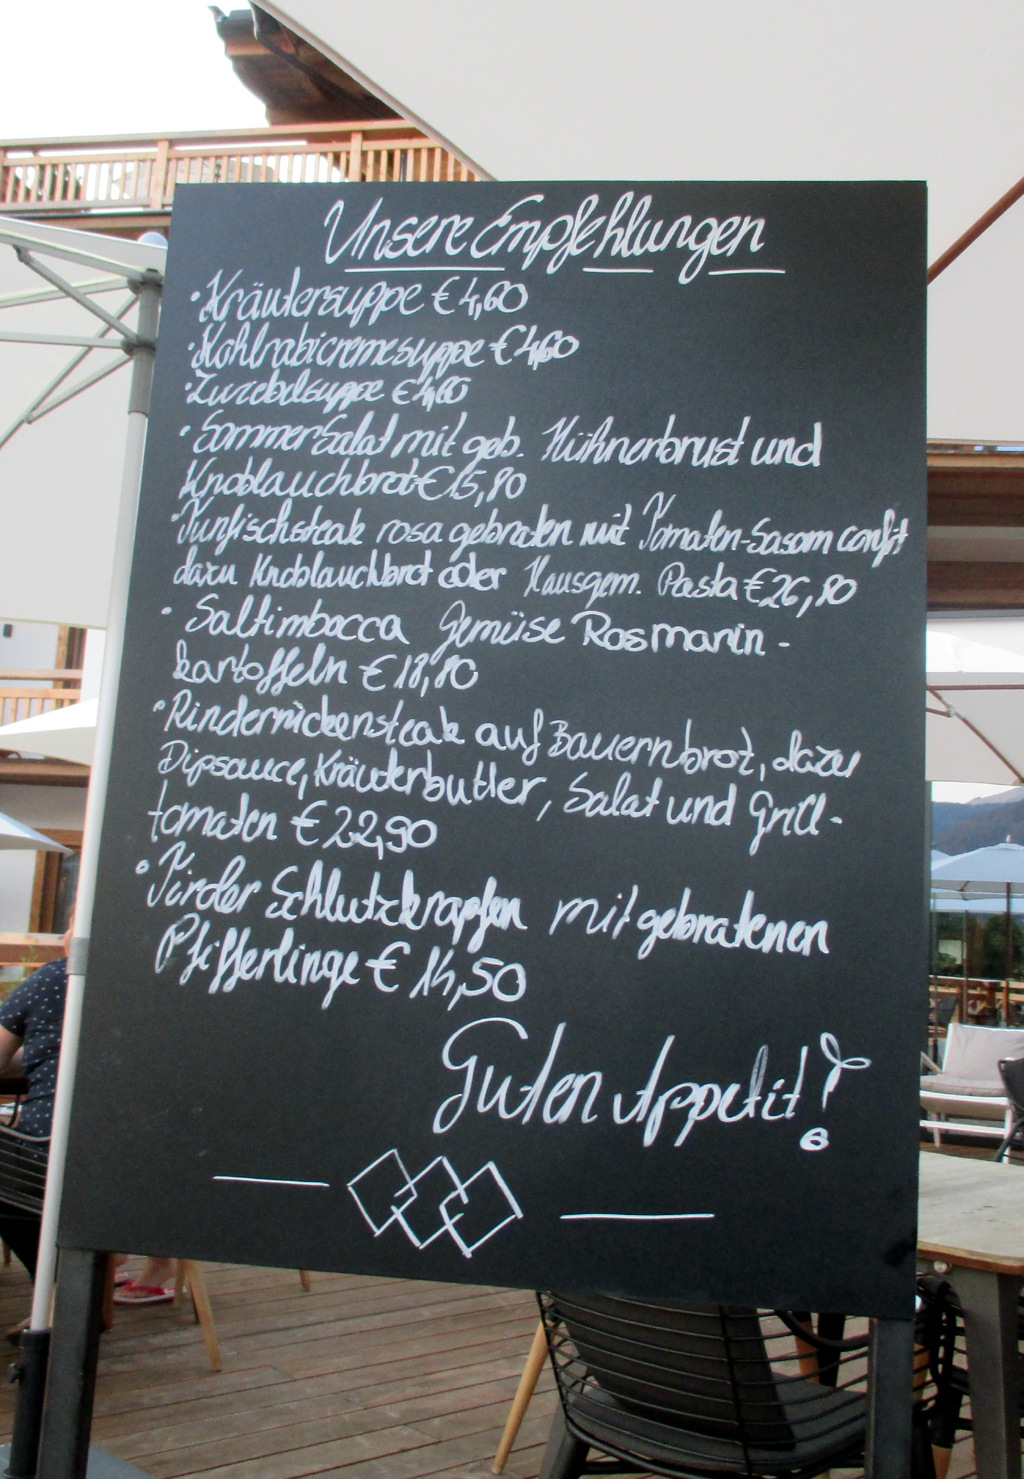 Unsere Empfehlungen
• Kräutersuppe € 4,60
• Kohlrabicremesuppe € 4,60
• Zwiebelsuppe € 4,60
• Sommersalat mit geb. Hühnerbrust und
Knoblauchbrot € 15,80
• Tunfischsteak rosa gebraten mit Tomaten-Sesam confit
dazu Knoblauchbrot oder Hausgem. Pasta € 26,80
• Saltimbocca Gemüse Rosmarin-
kartoffeln € 18,80
• Rinderrückensteak auf Bauernbrot, dazu
Dipsauce, Kräuterbutter, Salat und Grill-
tomaten € 22,90
• Tiroler Schlutzkrapfen mit gebratenen
Pfifferlinge € 14,50
Guten Appetit!